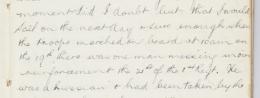 moment did I doubt but that I would
sail on the next day & sure enough when
the troops marched on board at 10am on
the 19th there was one man missing in our
reinforcement the 21st of the 1st Regt. He
was a Russian & had been taken by the